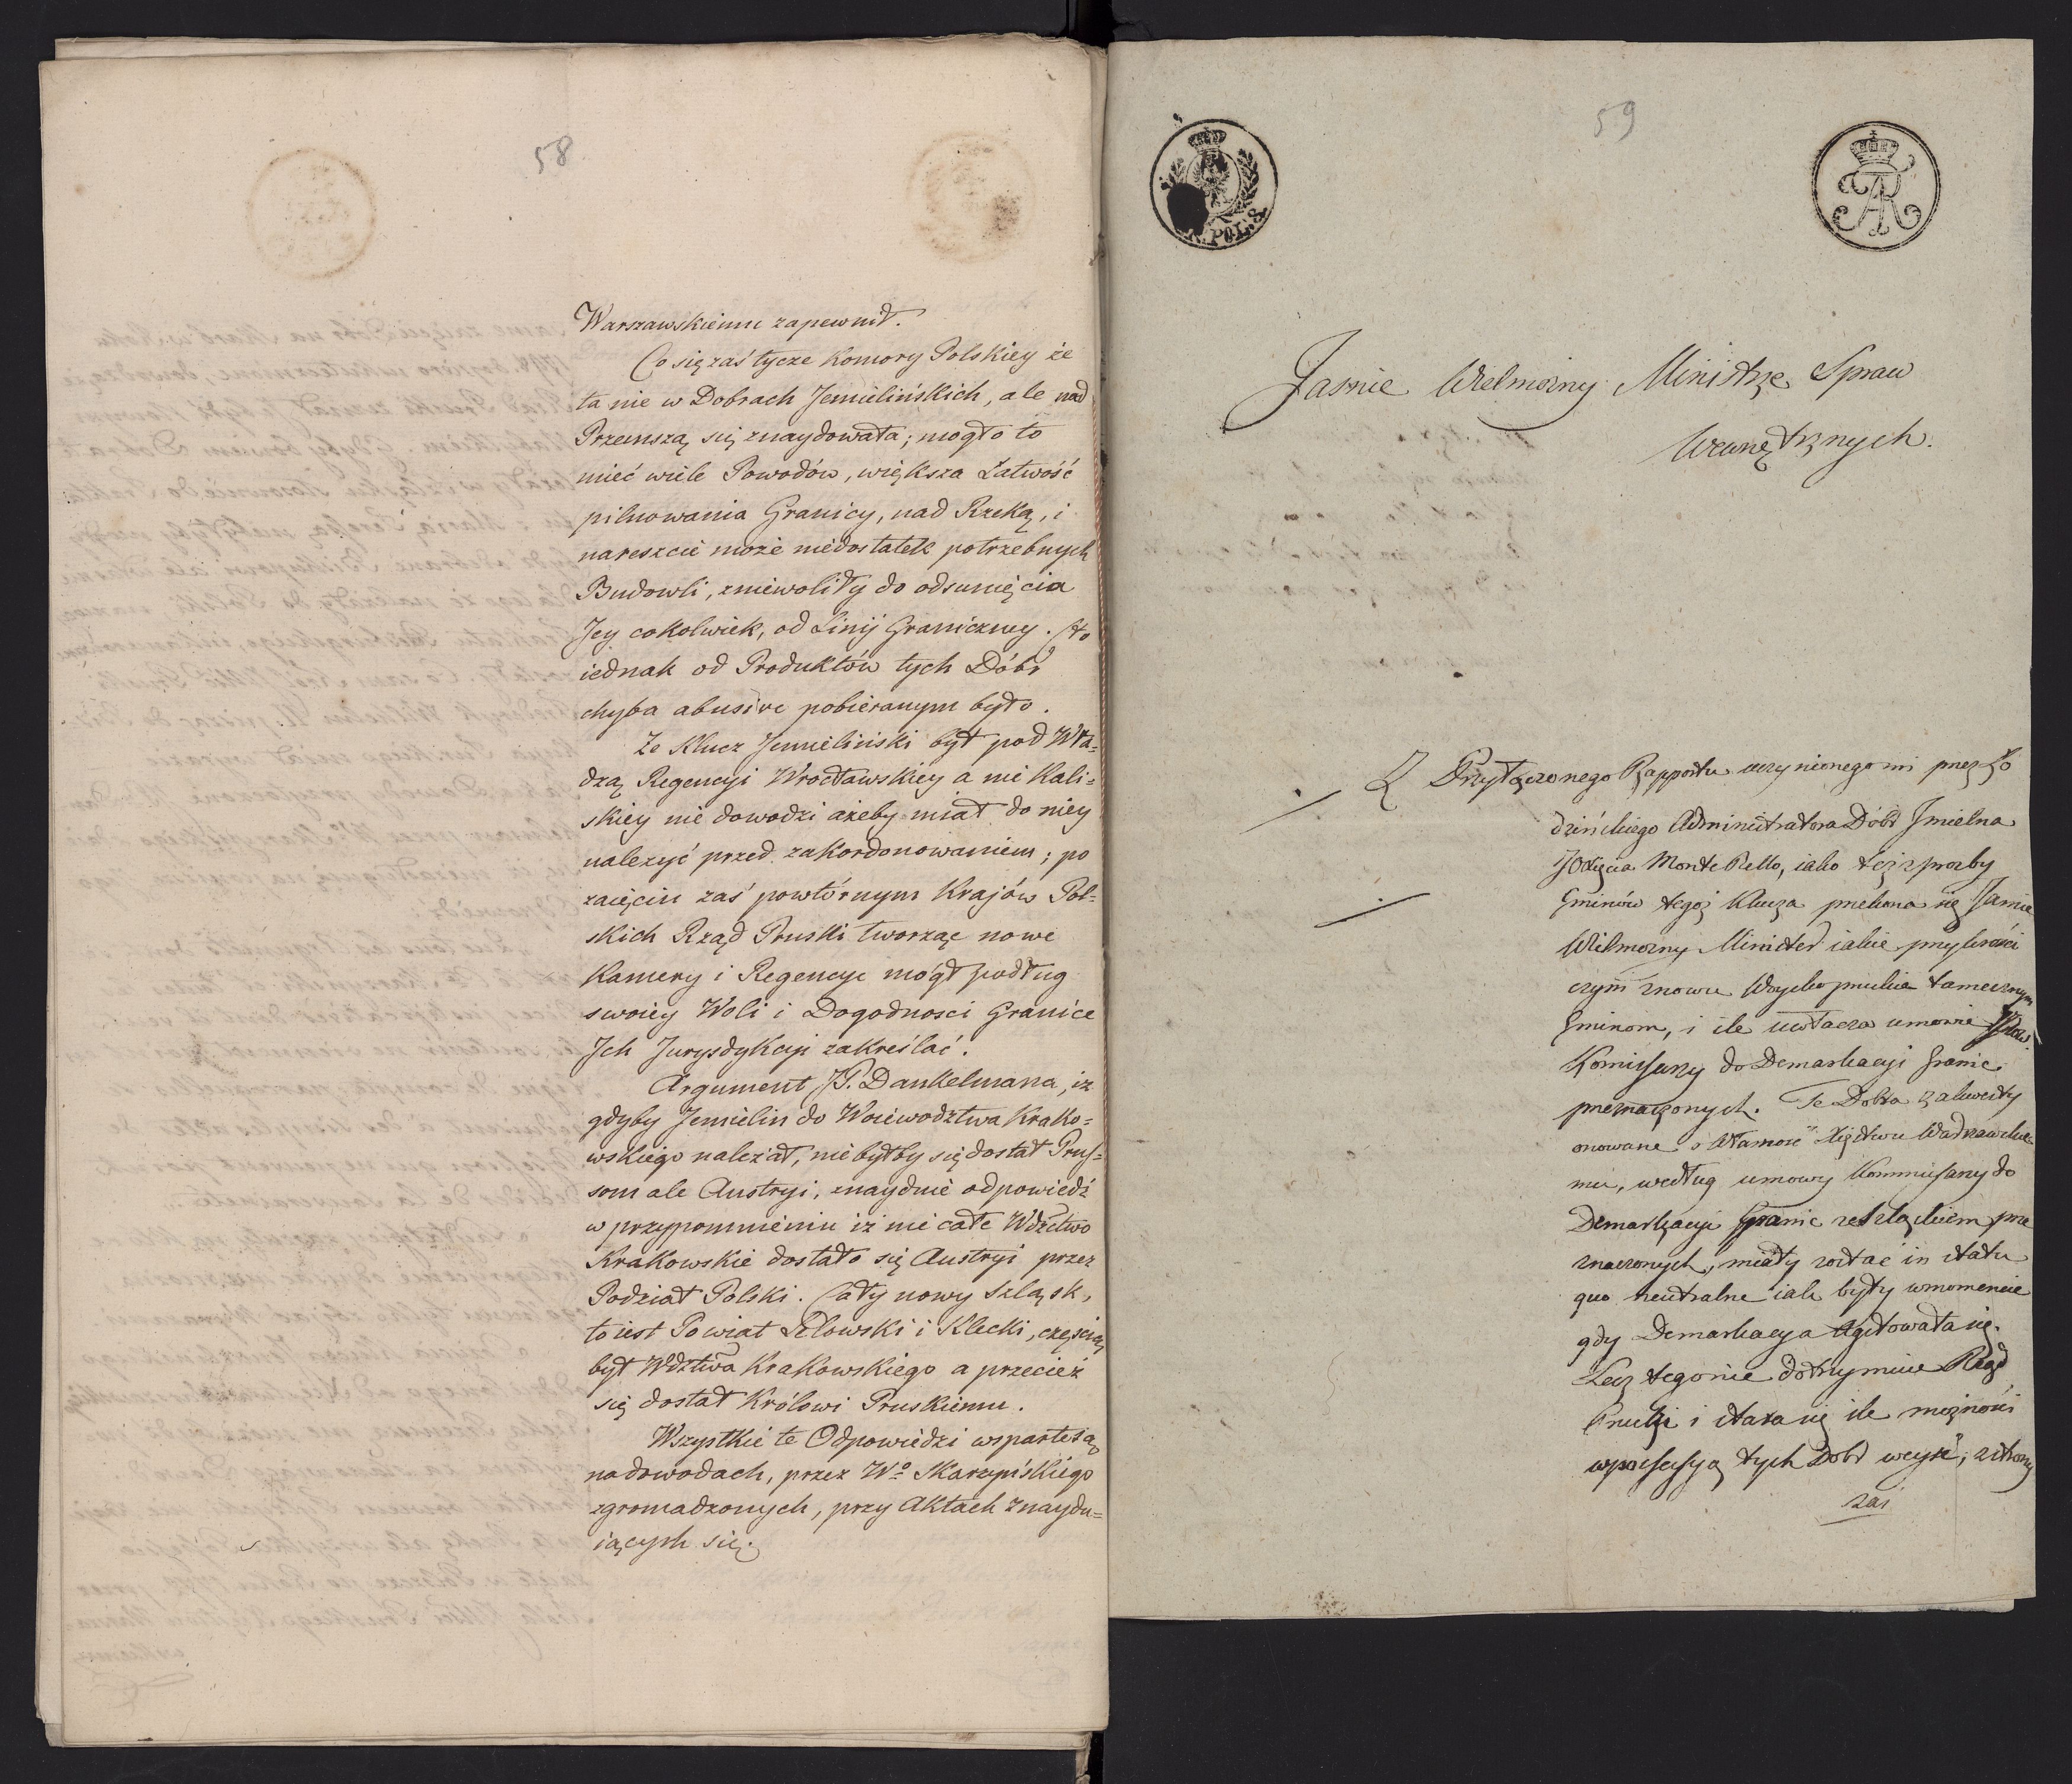 58
Warszawskiemu zapewnił.
Co się zaś tycze Komory Polskiey że
ta nie w Dobrach Jemielińskich, ale nad
Przemszą się znaydowała; mogło to
mieć wiele Powodów, większa Łatwość
pilnowania Granicy, nad Rzeką, i
nareszcie może niedostatek potrzebnych
Budowli, zniewoliły do odsunięcia
Jey cokolwiek, od Linij Graniczney. Cło
iednak od Produktów tych Dóbr
chyba abusive pobieranym było.
Że Klucz Jemieliński był pod Wła-
dzą Regencyi Wrocławskiey a nie Kali-
skiey nie dowodzi ażeby miał do niey
należyć przed zakordonowaniem; po
zaięciu zaś powtórnym Krajów Pol-
skich Rząd Pruski tworząc nowe
Kamery i Regencye mógł podług
swoiey Woli i Dogodnosci Granice
Jch Jurysdykcyi zakreślać.
Argument JP. Dankelmana, iż
gdyby Jemielin do Woiewodztwa Krako-
wskiego należał, nie byłby się dostał Prus-
som ale Austryi, znaydnie odpowiedź
w przypomnieniu iż nie całe Wdztwo
Krakowskie dostało się Austryi przez
Podział Polski. Cały nowy Szląsk,
to iest Powiat Lelowski i Klecki, częścią
był Wdztwa Krakowskiego a przecież
się dostał Królowi Pruskiemu.
Wszystkie te Odpowiedzi wsparte są
na dowodach, przez Wo Skarzyńskiego
zgromadzonych, przy Aktach znaydu-
iących się.
59
POL: S.
AR
Jasnie Wielmożny Ministrze Spraw
Wewnętrznych.
Z Przyłączonego Rapportu uczynionego mi przez Ło
dzińskiego Administratora Dóbr Jmielna
Xiążęcia Monte Bello, iako też z prozby
Gminów tegoż Klucza przekona się Jasnie
Wielmożny Minister iakie przykrości
czyni znowu Woysko pruskie tamecznym
Gminom, i ile uwłacza umowie
Komissarzy do Demarkacyi Granic
przeznaczonych. Te Dobra zakwesty
onowane o Własność Xięstwu Warszawskie
mu, według umowy Kommissarzy do
Demarkacyi Granic ze Szląskiem prze
znaczonych, miały zostać in statu
quo neutralne iak były w momencie
gdy Demarkacya agitowała się.
Lecz tego nie dotrzymuie Rząd
Pruski i stara się ile możności
w possessyą tych Dobr weyść, z strony
zaś